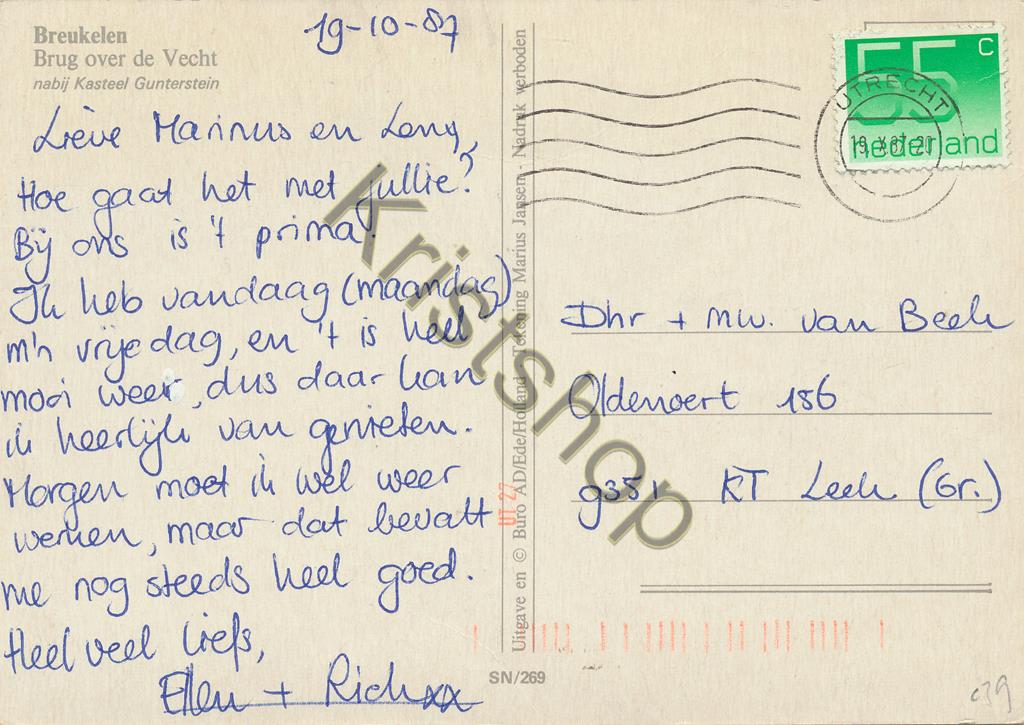 Breukelen
Brug over de Vecht
nabij Kasteel Gunterstein
19-10-87
Lieve Marinus en Leny,
Hoe gaat het met jullie?
Bij ons is 't prima!
Ik heb vandaag (maandag)
m'n vrije dag, en 't is heel
mooi weer, dus daar kan
ik heerlijk van genieten.
Morgen moet ik wel weer
werken, maar dat bevalt
me nog steeds heel goed.
Heel veel liefs,
Ellen + Rick xx
Uitgave en © Buro AD/Ede/Holland - Tekening Marius Jansen - Nadruk verboden
UT 27
SN/269
55 c
nederland
UTRECHT
19.X.87.20
Dhr + mw. van Beek
Oldenoert 156
9351 KT Leek (Gr.)
Kristshop
c39